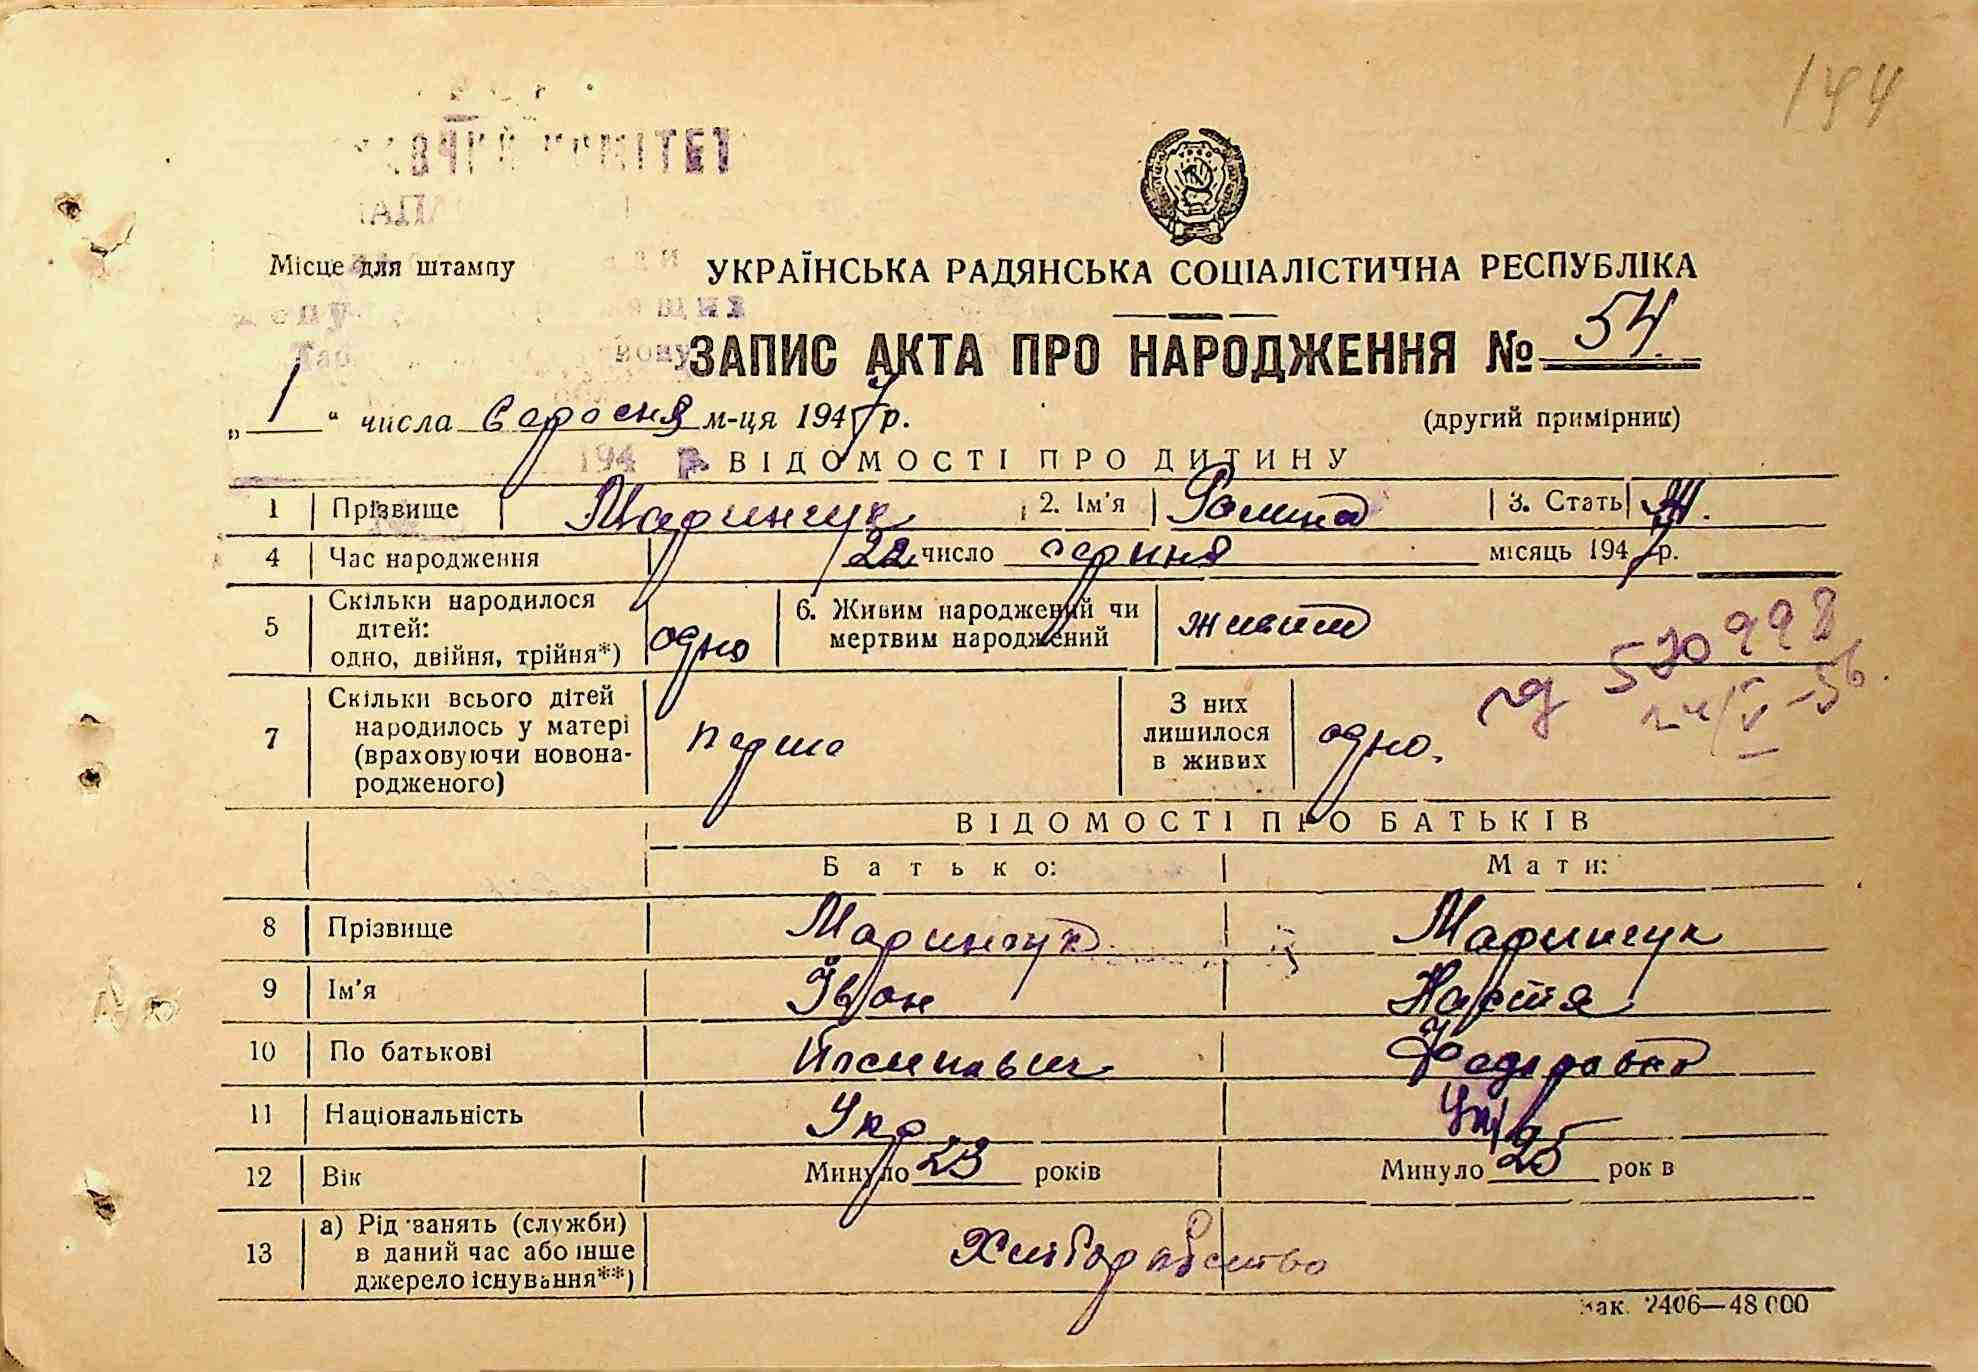 144
КОМІТЕТ
Місце для штампу
УКРАЇНСЬКА РАДЯНСЬКА СОЦІАЛІСТИЧНА РЕСПУБЛІКА
ЗАПИС АКТА ПРО НАРОДЖЕННЯ № 54
„1“ числа вересня м-ця 1947 р.
(другий примірник)
194 р.
ВІДОМОСТІ ПРО ДИТИНУ
1 Прізвище Маринчук 2. Ім'я Галина 3. Стать Ж.
4 Час народження 22 число серпня місяць 1947 р.
5 Скільки народилося дітей: одно, двійня, трійня*) одно 6. Живим народжений чи мертвим народжений живим
530998
24/V-56.
7 Скільки всього дітей народилось у матері (враховуючи новонародженого) перше З них лишилося в живих одно.
ВІДОМОСТІ ПРО БАТЬКІВ
Батько: Мати:
8 Прізвище Маринчук Маринчук
9 Ім'я Іван Настя
10 По батькові Йосипович Федоровна
11 Національність Укр Укр
12 Вік Минуло 23 років Минуло 25 рок в
13 а) Рід занять (служби) в даний час або інше джерело існування**) Хліборобство
Зак. 2406—48 000